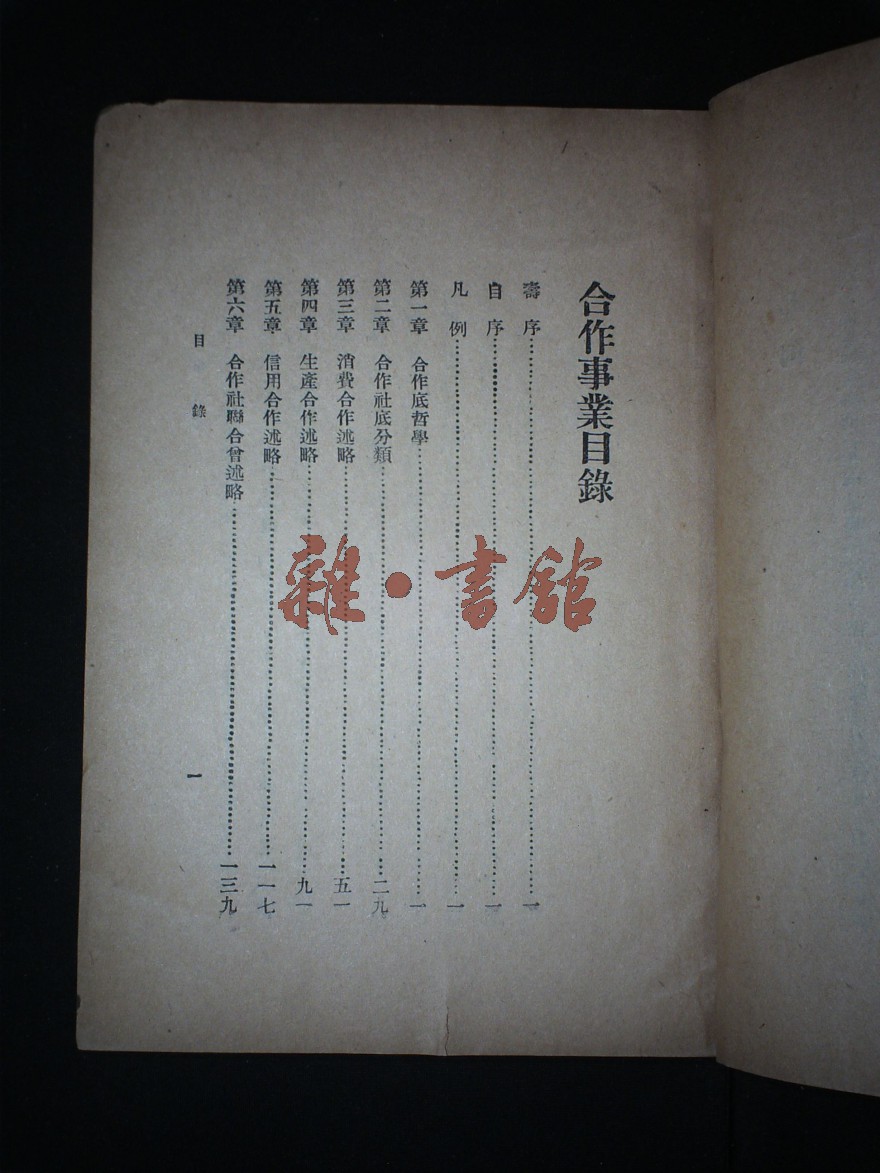 合作事業目錄
壽序……一
自序……一
凡例……一
第一章 合作底哲學……一
第二章 合作社底分類……二九
第三章 消費合作述略……五一
第四章 生產合作述略……九一
第五章 信用合作述略……一一七
第六章 合作社聯合會述略……一三九
目錄
一
雜·書館